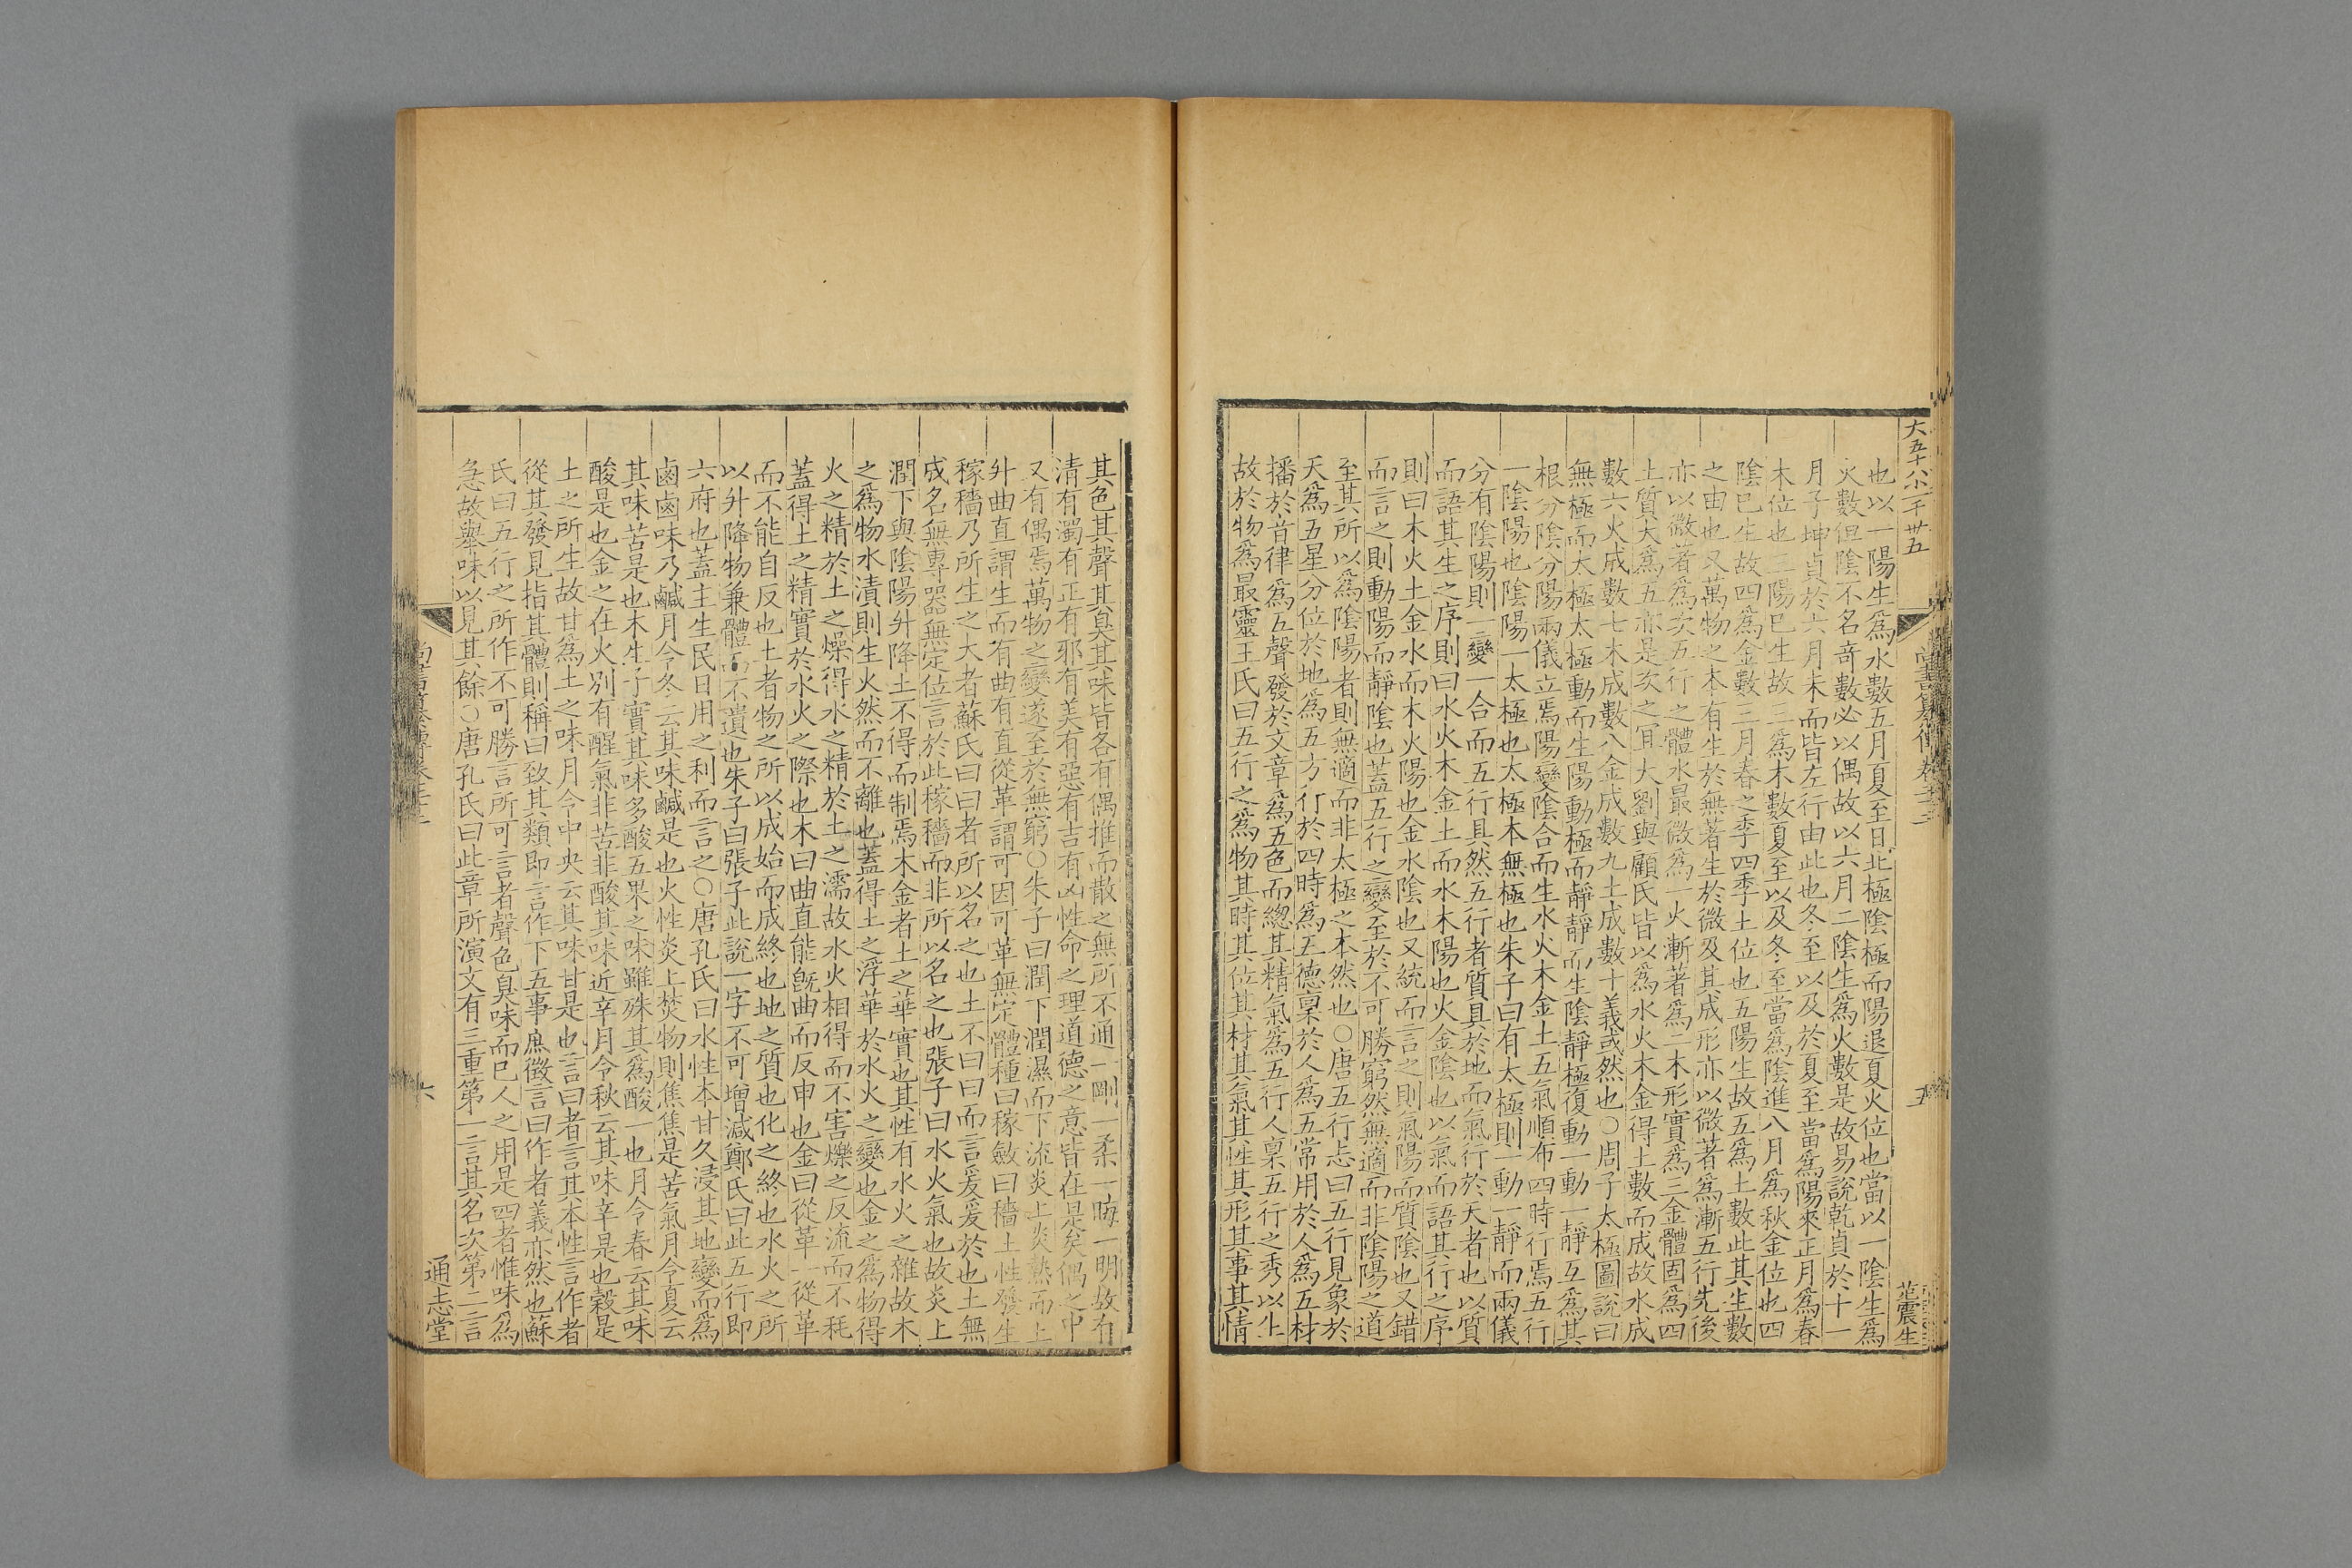 大五十八小二千卅五
也以一陽生爲水數五月夏至日北極陰極而陽退夏火位也當以一陰生爲
火數但陰不名奇數必以偶故以六月二陰生爲火數是故易說乾貞於十一
月子坤貞於六月未而皆左行由此也冬至以及於夏至當爲陽來正月爲春
木位也三陽巳生故三爲木數夏至以及冬至當爲陰進八月爲秋金位也四
陰巳生故四爲金數三月春之季四季土位也五陽生故五爲土數此其生數
之由也又萬物之本有生於無著生於微及其成形亦以微著爲漸五行先後
亦以微著爲次五行之體水最微爲一火漸著爲二木形實爲三金體固爲四
土質大爲五亦是次之宜大劉與顧氏皆以爲水火木金得土數而成故水成
數六火成數七木成數八金成數九土成數十義或然也○周子太極圖說曰
無極而太極太極動而生陽動極而靜靜而生陰靜極復動一動一靜互爲其
根分陰分陽兩儀立焉陽變陰合而生水火木金土五氣順布四時行焉五行
一陰陽也陰陽一太極也太極本無極也朱子曰有太極則一動一靜而兩儀
分有陰陽則一變一合而五行具然五行者質具於地而氣行於天者也以質
而語其生之序則曰水火木金土而水木陽也火金陰也以氣而語其行之序
則曰木火土金水而木火陽也金水陰也又統而言之則氣陽而質陰也又錯
而言之則動陽而靜陰也蓋五行之變至於不可勝窮然無適而非陰陽之道
至其所以爲陰陽者則無適而非太極之本然也○唐五行志曰五行見象於
天爲五星分位於地爲五方行於四時爲五德稟於人爲五常用於人爲五材
播於音律爲五聲發於文章爲五色而總其精氣爲五行人稟五行之秀以生
故於物爲最靈王氏曰五行之爲物其時其位其材其氣其性其形其事其情
其色其聲其臭其味皆各有偶推而散之無所不通一剛一柔一晦一明故有
清有濁有正有邪有美有惡有吉有凶性命之理道德之意皆在是矣偶之中
又有偶焉萬物之變遂至於無窮○朱子曰潤下潤濕而下流炎上炎熱而上
升曲直謂生而有曲有直從革謂可因可革無定體種曰稼斂曰穡土性發生
稼穡乃所生之大者蘇氏曰曰者所以名之也土不曰曰而言爰爰於也土無
成名無專器無定位言於此稼穡而非所以名之也張子曰水火氣也故炎上
潤下與陰陽升降土不得而制焉木金者土之華實也其性有水火之雜故木
之爲物水漬則生火然而不離也蓋得土之浮華於水火之變也金之爲物得
火之精於土之燥得水之精於土之濡故水火相得而不害爍之反流而不耗
蓋得土之精實於水火之際也木曰曲直能旣曲而反申也金曰從革一從革
而不能自反也土者物之所以成始而成終也地之質也化之終也水火之所
以升降物兼體而不遺也朱子曰張子此說一字不可增減鄭氏曰此五行即
六府也蓋主生民日用之利而言之○唐孔氏曰水性本甘久浸其地變而爲
鹵鹵味乃鹹月令冬云其味鹹是也火性炎上焚物則焦焦是苦氣月令夏云
其味苦是也木生子實其味多酸五果之味雖殊其爲酸一也月令春云其味
酸是也金之在火別有腥氣非苦非酸其味近辛月令秋云其味辛是也穀是
土之所生故甘爲土之味月令中央云其味甘是也言曰者言其本性言作者
從其發見指其體則稱曰致其類即言作下五事庶徵言曰作者義亦然也蘇
氏曰五行之所作不可勝言所可言者聲色臭味而巳人之用是四者惟味爲
急故舉味以見其餘○唐孔氏曰此章所演文有三重第一言其名次第二言
六
通志堂